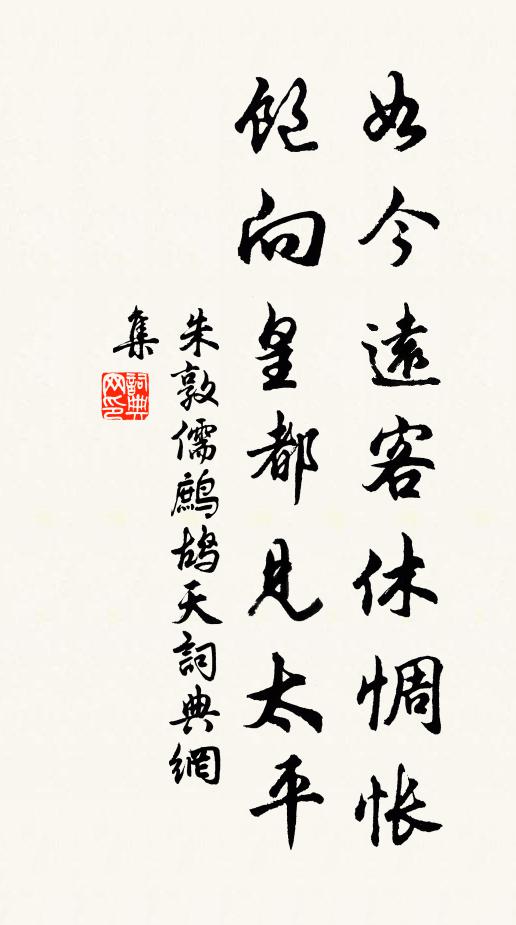 如今遠客休惆怅
飽向皇都見太平
朱敦儒鷓鴣天詞典網
集
詞典
网印